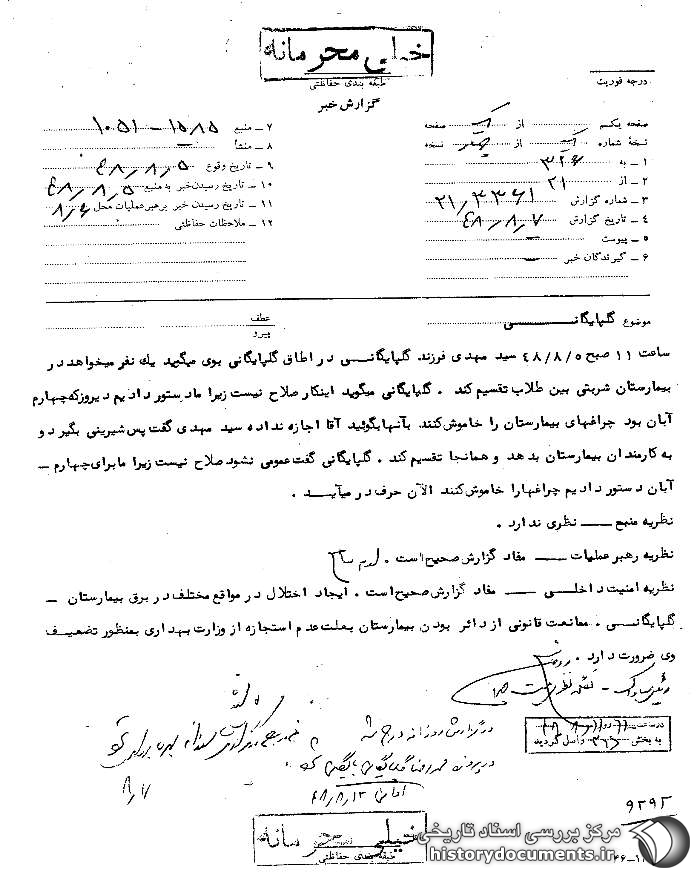 خیلی محرمانه
طبقه بندی حفاظتی
گزارش خبر
درجه فوریت
صفحه یکم از یک صفحه
نسخهٔ شماره یک از نسخه
۱ ـ به ۳۲۶
۲ ـ از ۲۱
۳ ـ شماره گزارش ۲۱/۳۳۶۱
۴ ـ تاریخ گزارش ۴۸/۸/۷
۵ ـ پیوست
۶ ـ گیرندگان خبر
۷ ـ منبع ۱۵۸۵ ـ ۱۰۵۱
۸ ـ منشأ
۹ ـ تاریخ وقوع ۴۸/۸/۵
۱۰ ـ تاریخ رسیدن خبر به منبع ۴۸/۸/۵
۱۱ ـ تاریخ رسیدن خبر برهبر عملیات محل ۸/۶
۱۲ ـ ملاحظات حفاظتی
موضوع گلپایگانـــی
عطف
پیرو
ساعت ۱۱ صبح ۴۸/۸/۵ سید مهدی فرزند گلپایگانــی در اطاق گلپایگانی بوی میگوید یك نفر میخواهد در
بیمارستان شربتی بین طلاب تقسیم کند . گلپایگانی میگوید اینکار صلاح نیست زیرا ما دستور دادیم دیروز که چهارم
آبان بود چراغهای بیمارستان را خاموش کنند بآنها بگوئید آقا اجازه نداده سید مهدی گفت پس شیرینی بگیرد و
به کارمندان بیمارستان بدهد و همانجا تقسیم کند . گلپایگانی گفت عمومی نشود صلاح نیست زیرا ما برای چهارم ـ
آبان دستور دادیم چراغها را خاموش کنند الآن حرف در میآیـــد .
نظریه منبع ـــ نظری ندارد .
نظریه رهبر عملیات ـــ مفاد گزارش صحیح است .
نظریه امنیت داخلــی ـــ مفاد گزارش صحیح است . ایجاد اختلال در مواقع مختلف در برق بیمارستان ـ
گلپایگانــی . ممانعت قانونی از دائر بودن بیمارستان بعلت عدم استجازه از وزارت بهداری بمنظور تضعیـــف
وی ضرورت دارد .
در گزارش روزانه درج شد
در پرونده محمدرضا گلپایگانی بایگانی شود
۴۸/۸/۱۳
۸/۷
در ساعت
به بخش ۳۱۶ واصل گردید
۹۲۹۲
خیلی محرمانه
طبقه بندی حفاظتی
مرکز بررسی اسناد تاریخی
historydocuments.ir